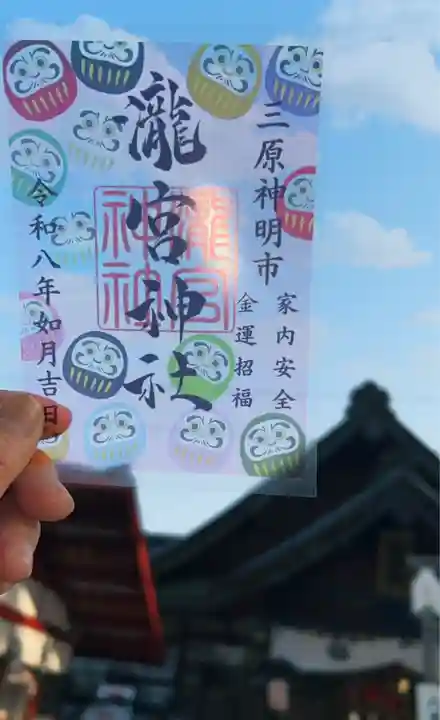 三原神明市
家内安全
金運招福
瀧宮神社
瀧宮
神社
令和八年如月吉日